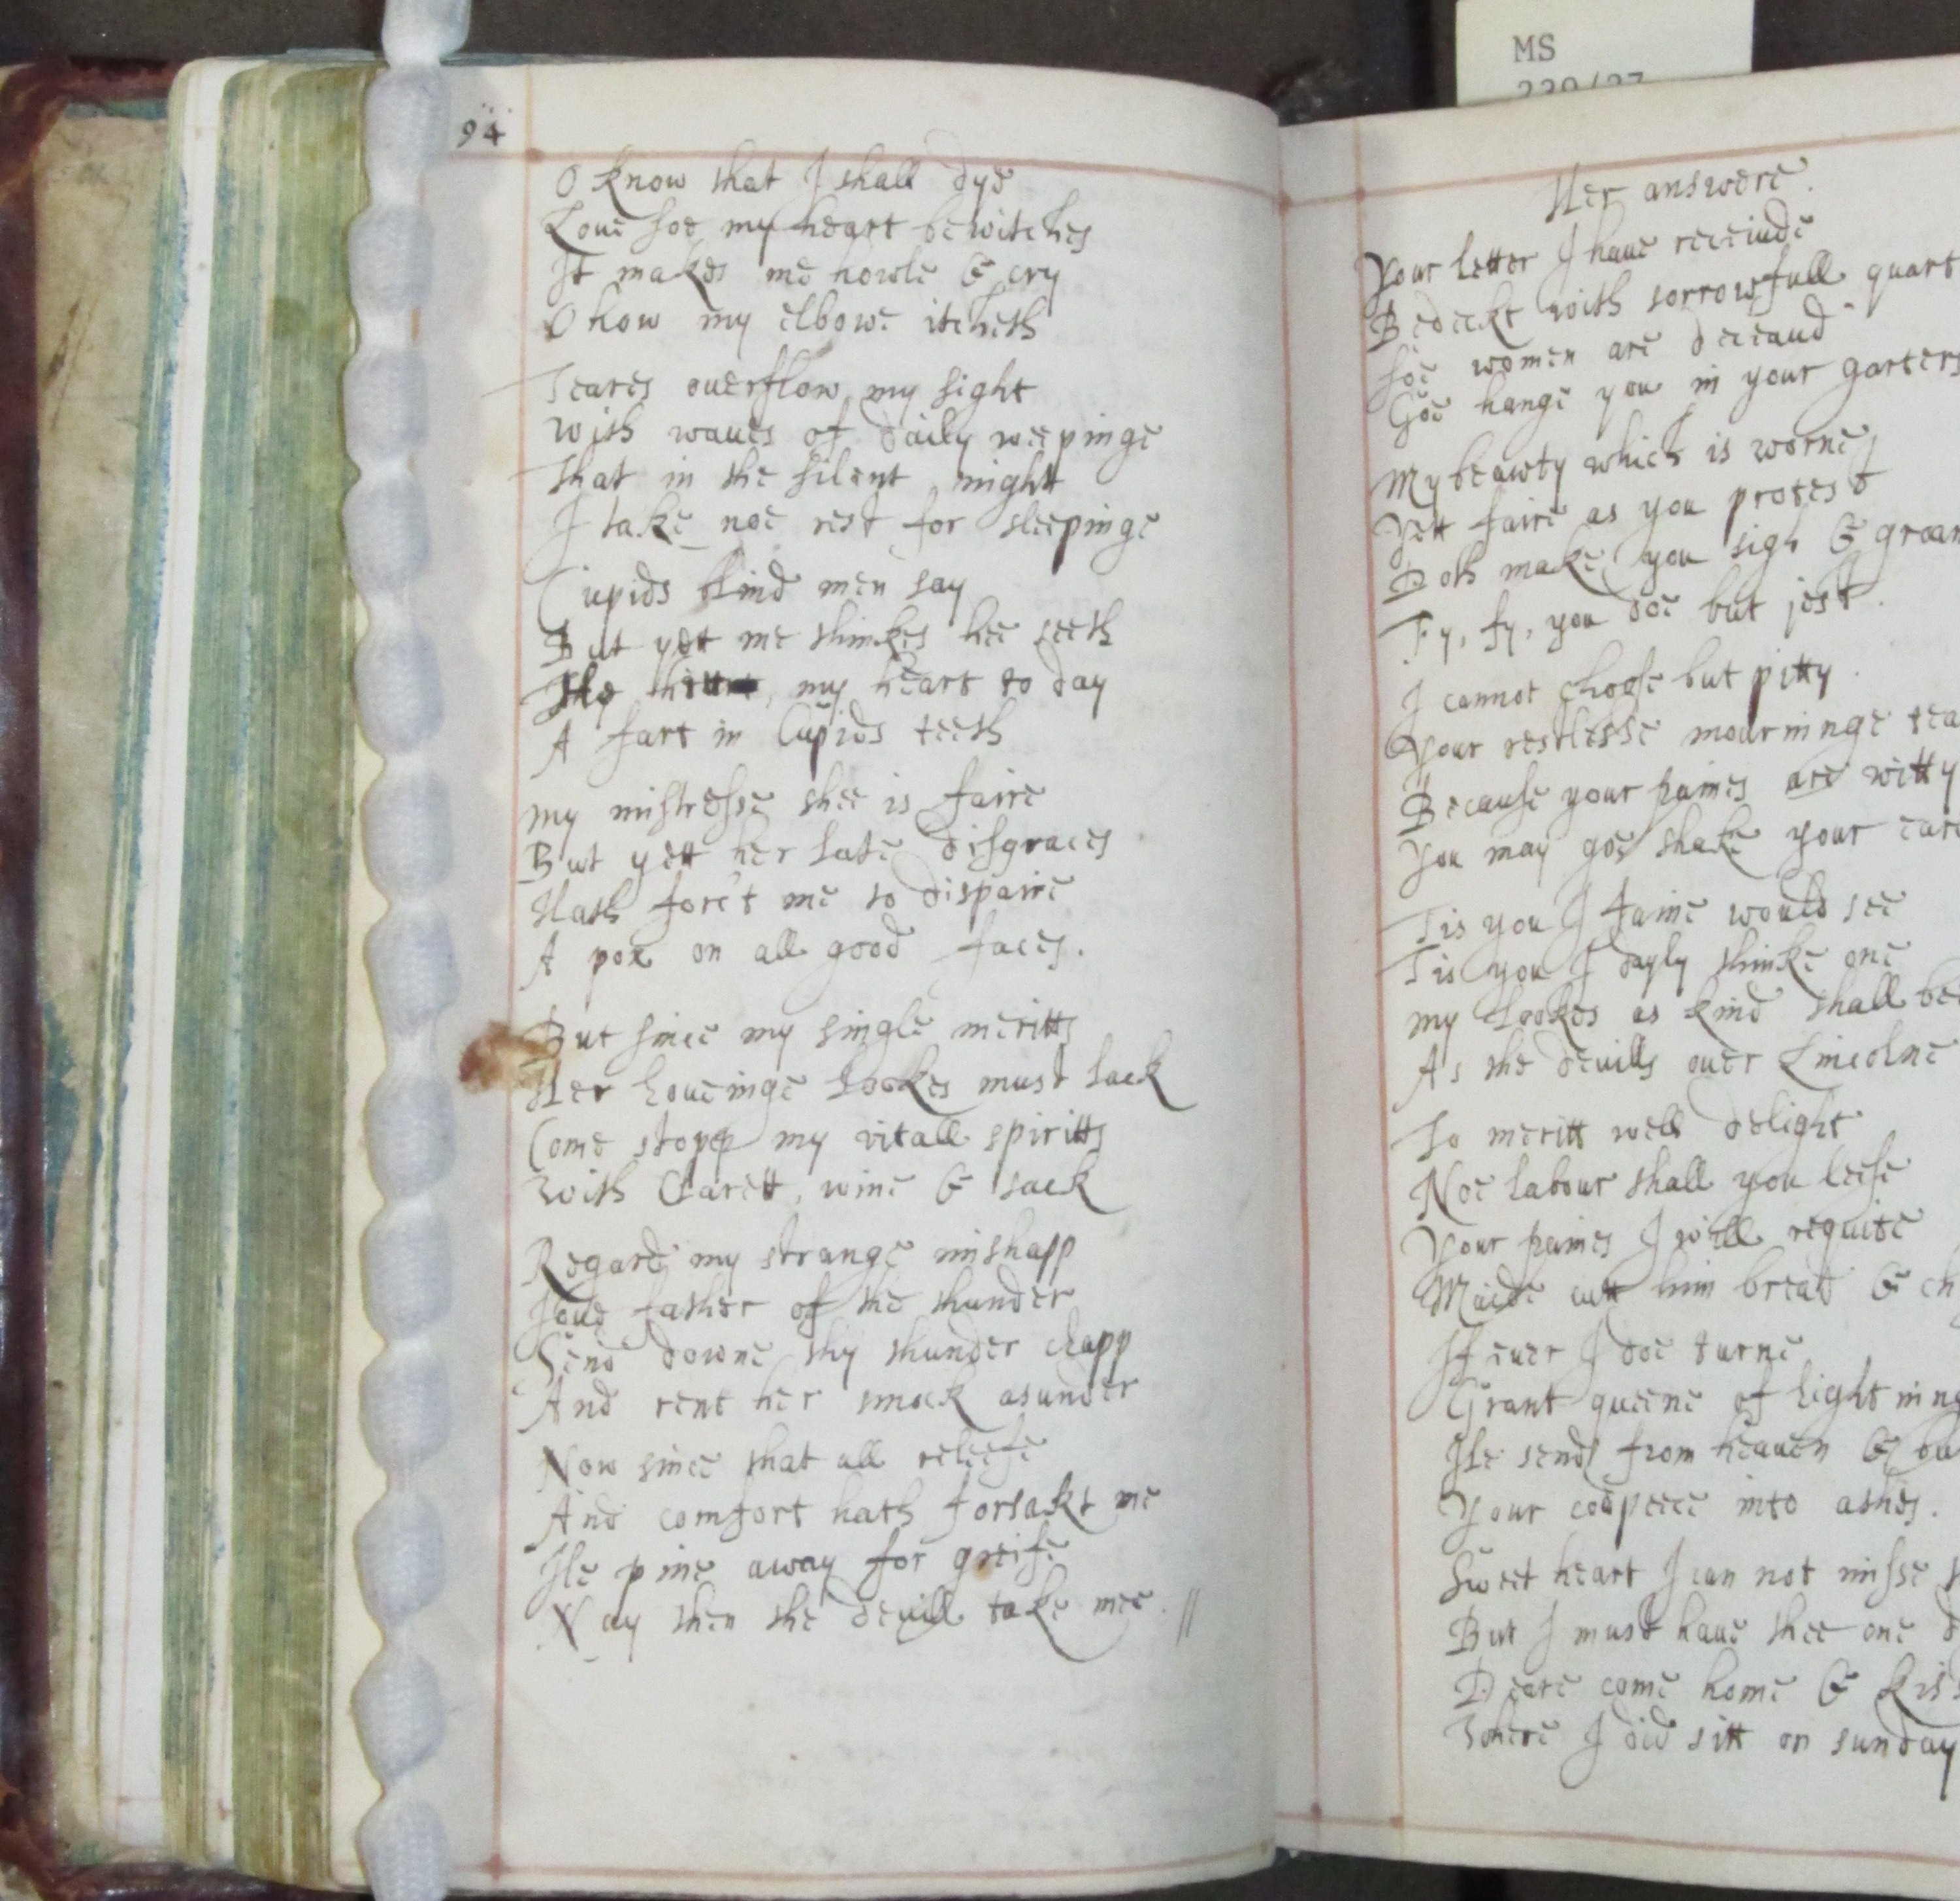 MS
239/27
94
O know that I shall dye
Loue soe my heart bewitches
It makes me howle & cry
O how my elbowe itcheth
Teares ouerflow my sight
With waues of daily weepinge
That in the silent night
I take noe rest for sleepinge
Cupids blind men say
But yet me thinkes hee seeth
He hitt my heart to day
A fart in Cupids teeth
My mistresse shee is faire
But yett her late disgraces
Hath forc't me to dispaire
A pox on all good faces.
But since my single meritts
Her loueinge lookes must lack
Come stopp my vitall spiritts
With Clarett, wine & sack
Regard my strange mishapp
Joue father of the thunder
Send downe thy thunder clapp
And rent her smock asunder
Now since that all releefe
And comfort hath forsakt me
Ile pine away for greife
Nay then the deuill take mee. //
Her answere.
Your letter I haue receiude
Bedeckt with sorrowfull quart
soe women are deceaud
Goe hange you in your garters
My beawty which is worne
Yett faire as you protest
Doth make you sigh & groan
Fy, fy, you doe but jest.
I cannot choose but pitty.
Your restlesse mourninge tea
Because your paines are witty
You may goe shake your eare
Tis you I faine would see
Tis you I dayly thinke one
my lookes as kind shall bee
As the deuills ouer Lincolne
To meritt well delight
Noe labour shall you leese
Your paines I will requite
Maide cutt him bread & ch
If euer I doe turne
Grant queene of lightning
Ile send from heauen & bu
Your codpeece into ashes.
Sweet heart I can not misse
But I must haue thee one d
Deare come home & kis
Where I did sitt on sunday